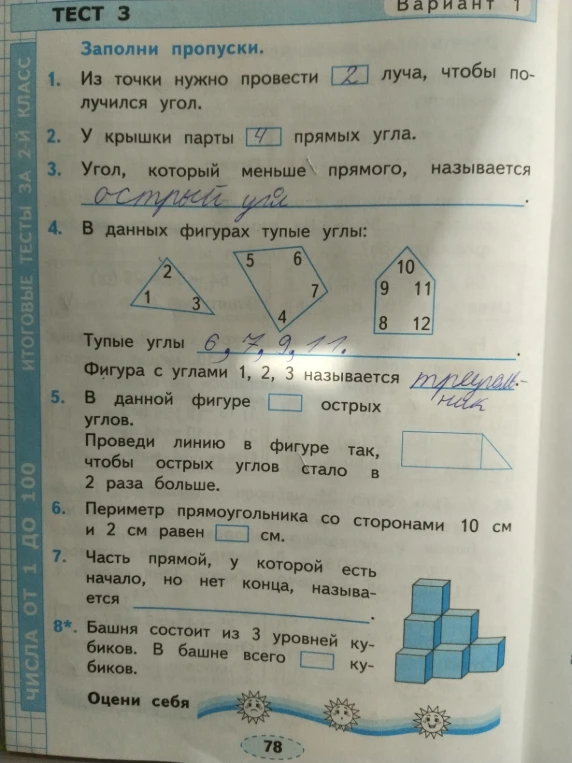 ТЕСТ 3
Вариант 1
Заполни пропуски.
1. Из точки нужно провести 2 луча, чтобы по-
лучился угол.
2. У крышки парты 4 прямых угла.
3. Угол, который меньше прямого, называется
острый угл.
4. В данных фигурах тупые углы:
1 2 3
5 6 7 4
10 9 11 8 12
Тупые углы 6, 7, 9, 11.
Фигура с углами 1, 2, 3 называется треуголь-
ник
5. В данной фигуре острых
углов.
Проведи линию в фигуре так,
чтобы острых углов стало в
2 раза больше.
6. Периметр прямоугольника со сторонами 10 см
и 2 см равен см.
7. Часть прямой, у которой есть
начало, но нет конца, называ-
ется .
8*. Башня состоит из 3 уровней ку-
биков. В башне всего ку-
биков.
Оцени себя
78
ЧИСЛА ОТ 1 ДО 100 ИТОГОВЫЕ ТЕСТЫ ЗА 2-Й КЛАСС